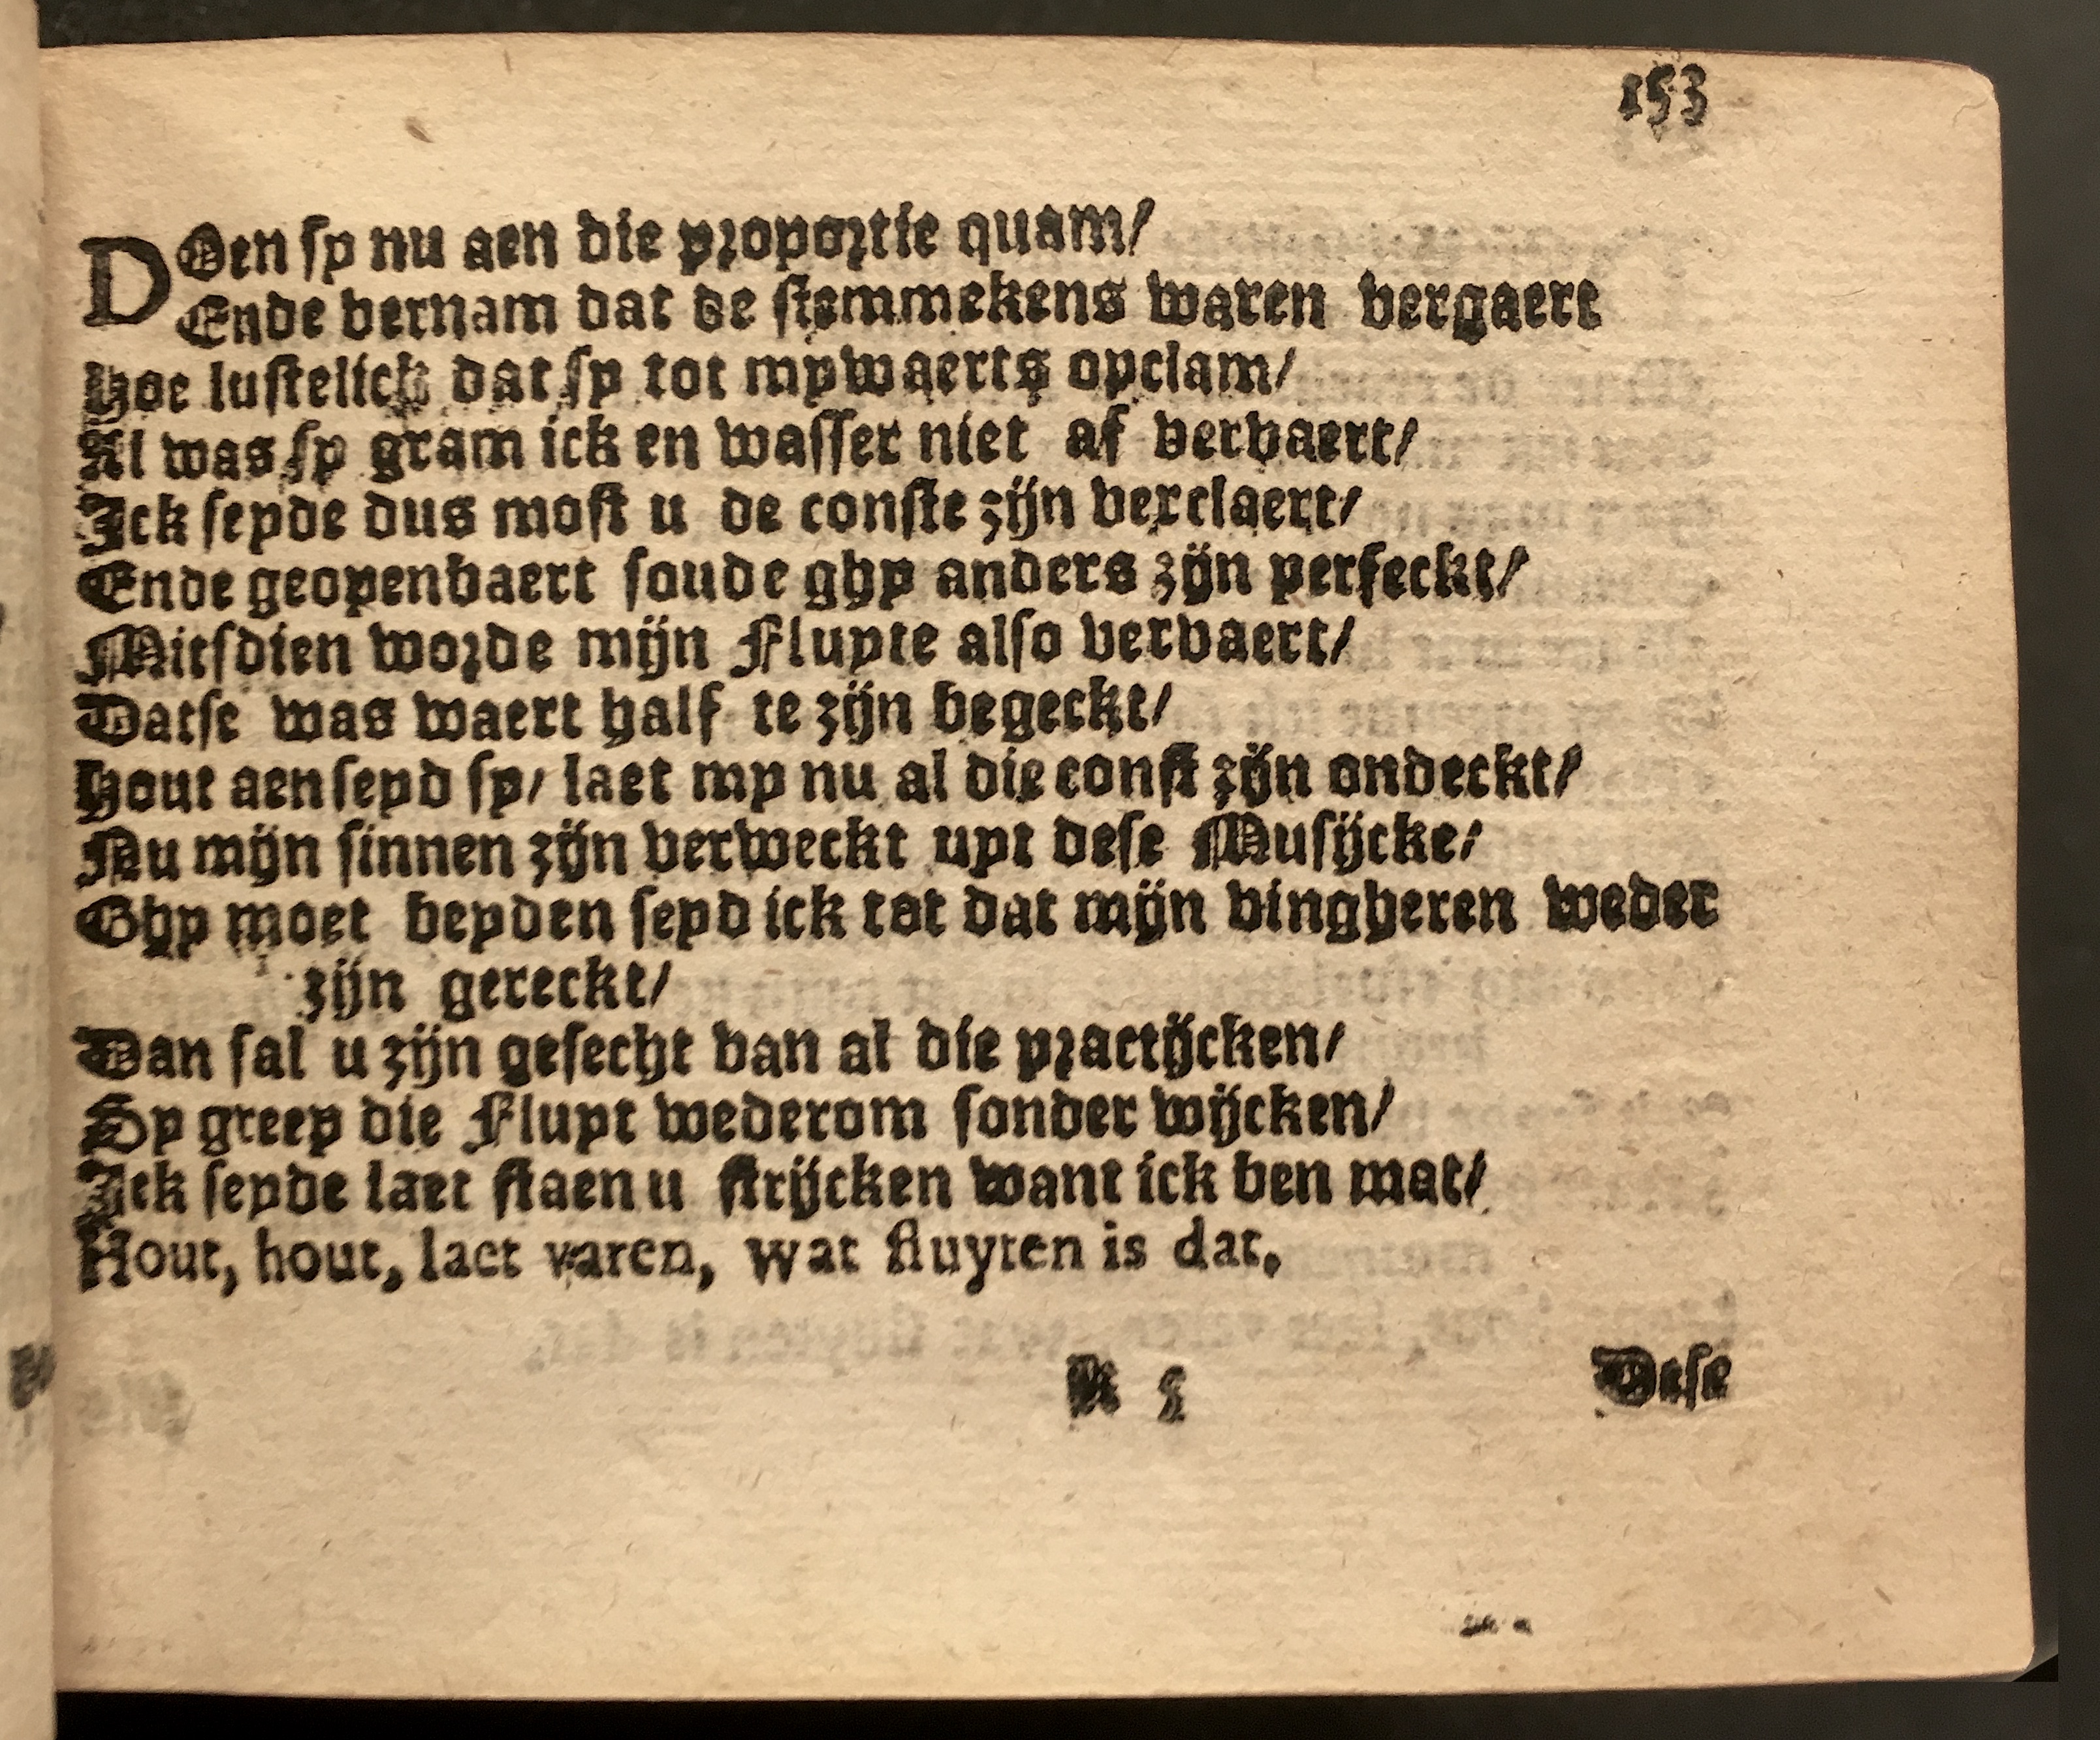 153
DOen sy nu aen die proportie quam/
Ende vernam dat de stemmekens waren vergaert
Hoe lustelick dat sy tot mywaerts opclam/
Al was sy gram ick en wasser niet af vervaert/
Ick seyde dus most u de conste zijn verclaert/
Ende geopenbaert soude ghy anders zijn perfeckt/
Mitsdien worde mijn Fluyte also vervaert/
Datse was waert half te zijn begeckt/
Hout aen seyd sy/ laet my nu al die const zijn ondeckt/
Nu mijn sinnen zijn verweckt upt dese Musijcke/
Ghy moet beyden seyd ick tot dat mijn vingheren weder
zijn gereckt/
Dan sal u zijn gesecht van al die practijcken/
Sy greep die Fluyt wederom sonder wijcken/
Ick seyde laet staen u strijcken want ick ben mat/
Hout, hout, laet varen, wat fluyten is dat.
Dese